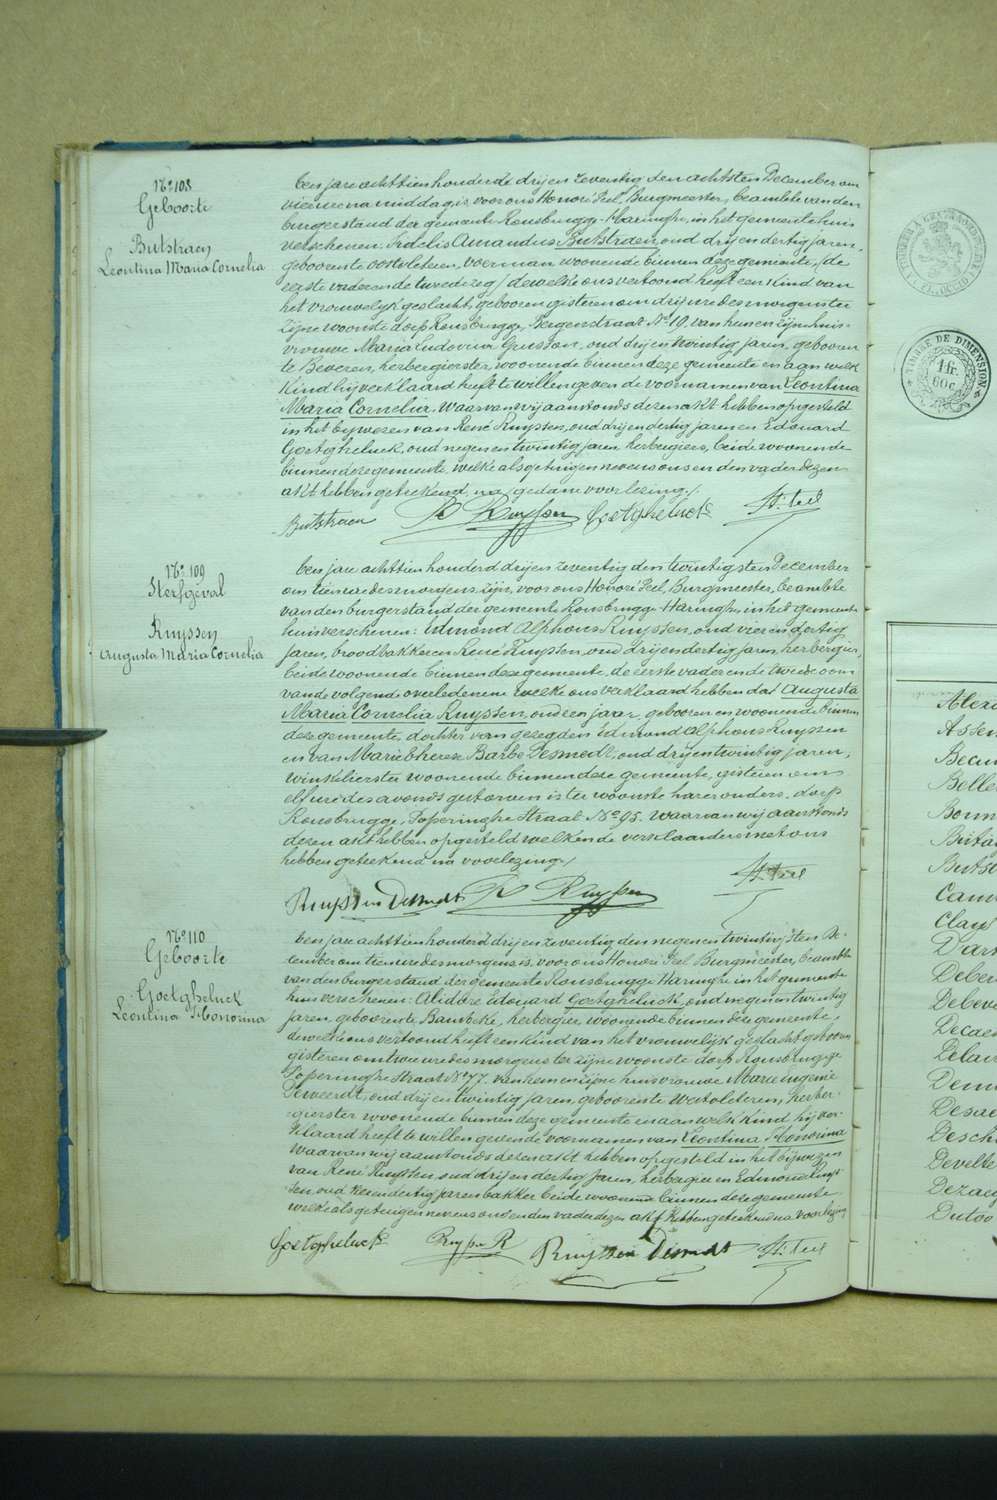 No 108
Geboorte
Butstraen
Leontina Maria Cornelia
Een jare achttien honderd drij en zeventig den achtsten December om
vier ure namiddag is, voor ons Honoré Feel, Burgmeester, beambte van den
burgerstand der gemeente Rousbrugge-Haringhe, in het gemeentehuis
verschenen: Fidelis Amandus Butstraen, oud drij en dertig jaren,
geboren te Oostvleteren, voerman woonende binnen deze gemeente, (de
eerste vader en de tweede
dewelke ons vertoond heeft een kind van
het vrouwelijk geslacht, geboren gisteren om drij ure des morgens ter
zijne woonste dorp Rousbrugge, Bergenstraat No 19, van hem en zijne huis-
vrouwe Maria Ludovica oud drij en twintig jaren, geboren
te Beveren, herbergierster, woonende binnen deze gemeente en aan welk
kind hij verklaard heeft te willen geven de voornamen van Leontina
Maria Cornelia. Waarvan wij aanstonds dezen akt hebben opgesteld
in het bijwezen van René Ruyssen, oud drij en dertig jaren en Edouard
Goetgheluck, oud negen en twintig jaren herbergiers, beide woonende
binnen deze gemeente, welke als getuigen nevens ons en den vader dezen
akt hebben geteekend, na gedane voorlezing./.
Butstraen R Ruyssen Goetgheluck H. Feel
No 109
Sterfgeval
Ruyssen
Augusta Maria Cornelia
Een jare achttien honderd drij en zeventig den twintigsten December
om tien ure des morgens zijn, voor ons Honoré Feel, Burgmeester, beambte
van den burgerstand der gemeente Rousbrugge Haringhe, in het gemeente
huis verschenen: Edmond Alphons Ruyssen, oud vier en dertig
jaren, broodbakker en René Ruyssen, oud drij en dertig jaren, herbergier,
beide woonende binnen deze gemeente, de eerste vader en de tweede oom
van de volgende overledenene welke ons verklaard hebben dat Augusta
Maria Cornelia Ruyssen, oud een jaar, geboren en woonende binnen
deze gemeente, dochter van gezegden Edmond Alphons Ruyssen
en van Marie Therese Barbe Desmedt, oud drij en twintig jaren,
winkelierster woonende binnen deze gemeente, gisteren om
elf ure des avonds gestorven is ter woonste harer ouders, dorp
Rousbrugge, Poperinghe Straat No 95. Waarvan wij aanstonds
dezen akt hebben opgesteld welken de verklaarders met ons
hebben geteekend na voorlezing./
Ruyssen Desmedt R Ruyssen H. Feel
No 110
Geboorte
Goetgheluck
Leontina Honorina
Een jare achttien honderd drij en zeventig den negen en twintigsten De-
cember om tien ure des morgens is, voor ons Honoré Feel Burgmeester, beambte
van den burgerstand der gemeente Rousbrugge Haringhe in het gemeente
huis verschenen: Edouard Goetgheluck, oud negen en twintig
jaren, geboren te Bambeke, herbergier, woonende binnen deze gemeente,
dewelke ons vertoond heeft een kind van het vrouwelijk geslacht geboren
gisteren om twee ure des morgens ter zijne woonste dorp Rousbrugge
Poperinghe Straat No 77. van hem en zijne huisvrouwe Marie Eugenie
oud drij en twintig jaren, geboren te Westvleteren, herber-
gierster woonende binnen deze gemeente en aan welk kind hij ver-
klaard heeft te willen geven de voornamen van Leontina Honorina
Waarvan wij aanstonds dezen akt hebben opgesteld in het bijwezen
van René Ruyssen, oud drij en dertig jaren, herbergier en Edmond Ruys-
sen, oud vier en dertig jaren bakker beide woonende binnen deze gemeente
welke als getuigen nevens ons en den vader dezen akt hebben geteekend na voorlezing
Goetgheluck Ruyssen R Ruyssen Desmedt H. Feel
TIMBRE DE DIMENSION
1 fr.
60 c.
Alexa
Assem
Becu
Belle
Bonn
Butst
Clays
Deber
Debev
Decae
Delai
Desch
Develt